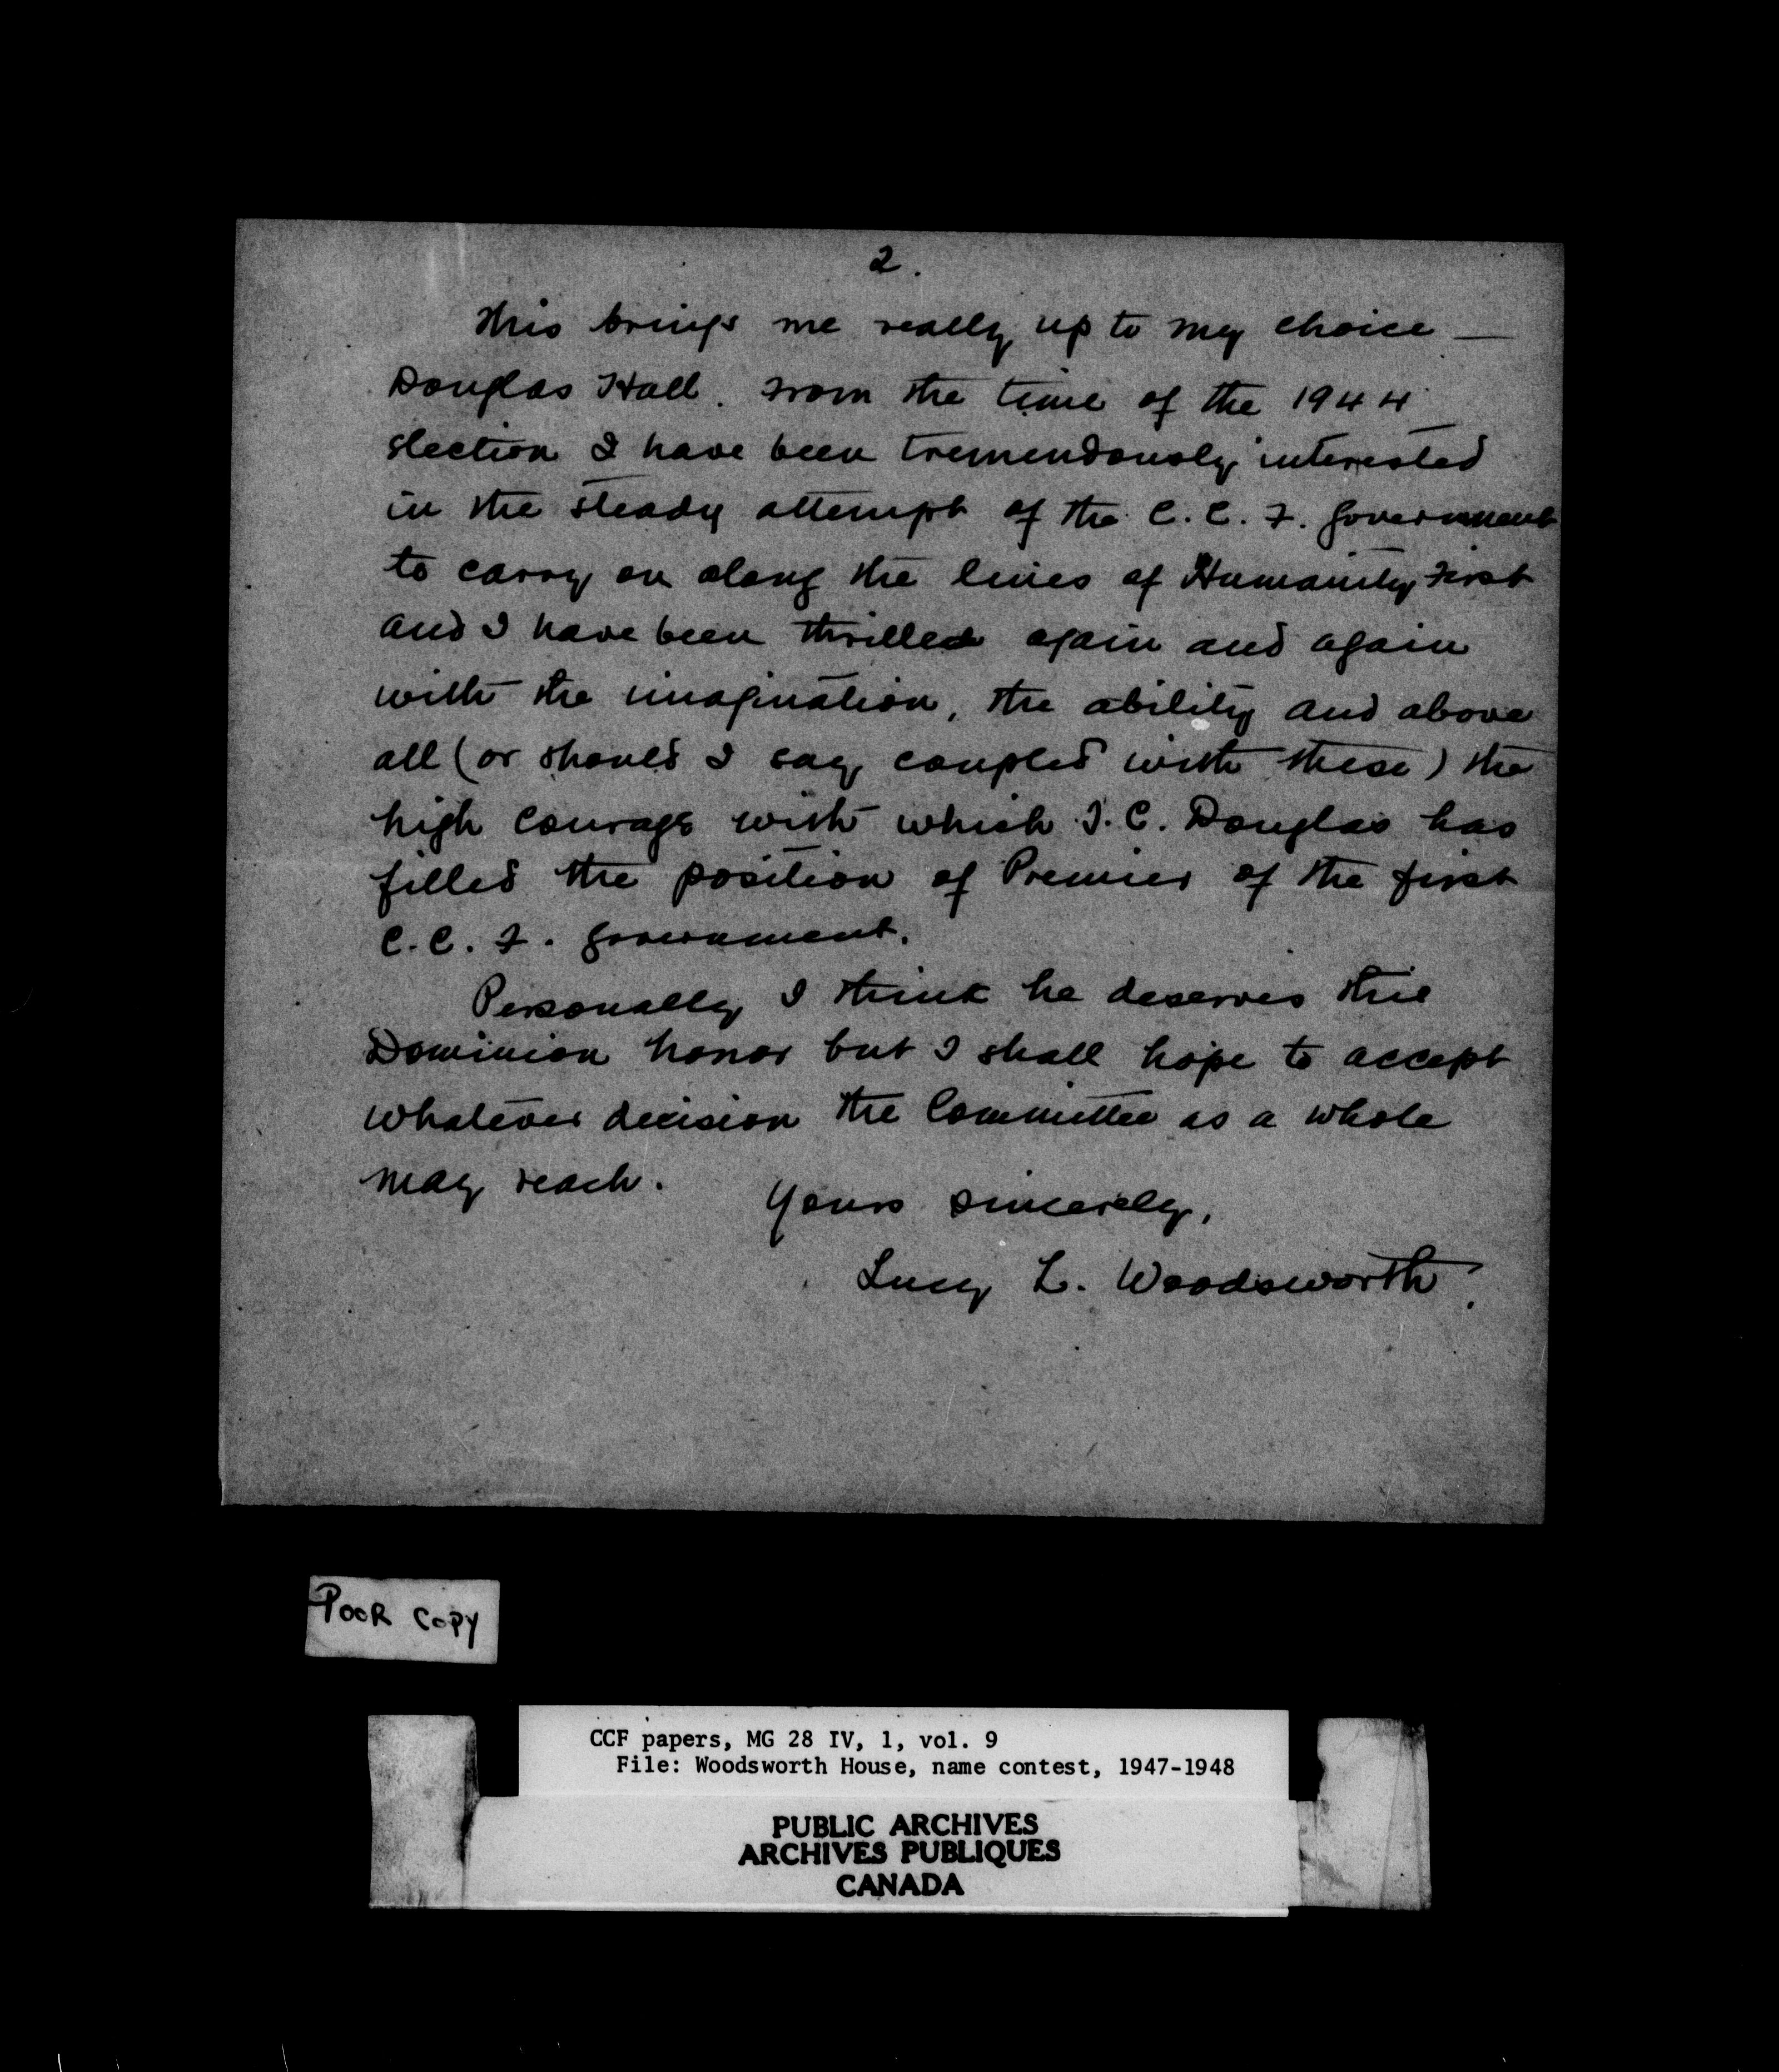 2.
This brings me really up to my choice —
Douglas Hall. From the time of the 1944
election I have been tremendously interested
in the steady attempt of the C.C.F. government
to carry on along the lines of Humanity First
and I have been thrilled again and again
with the imagination, the ability and above
all (or should I say coupled with these) the
high courage with which T.C. Douglas has
filled the position of Premier of the first
C.C.F. government.
Personally I think he deserves this
Dominion honor but I shall hope to accept
whatever decision the Committee as a whole
may reach.
Yours sincerely,
Lucy L. Woodsworth.
POOR COPY
CCF papers, MG 28 IV, 1, vol. 9
File: Woodsworth House, name contest, 1947-1948
PUBLIC ARCHIVES
ARCHIVES PUBLIQUES
CANADA